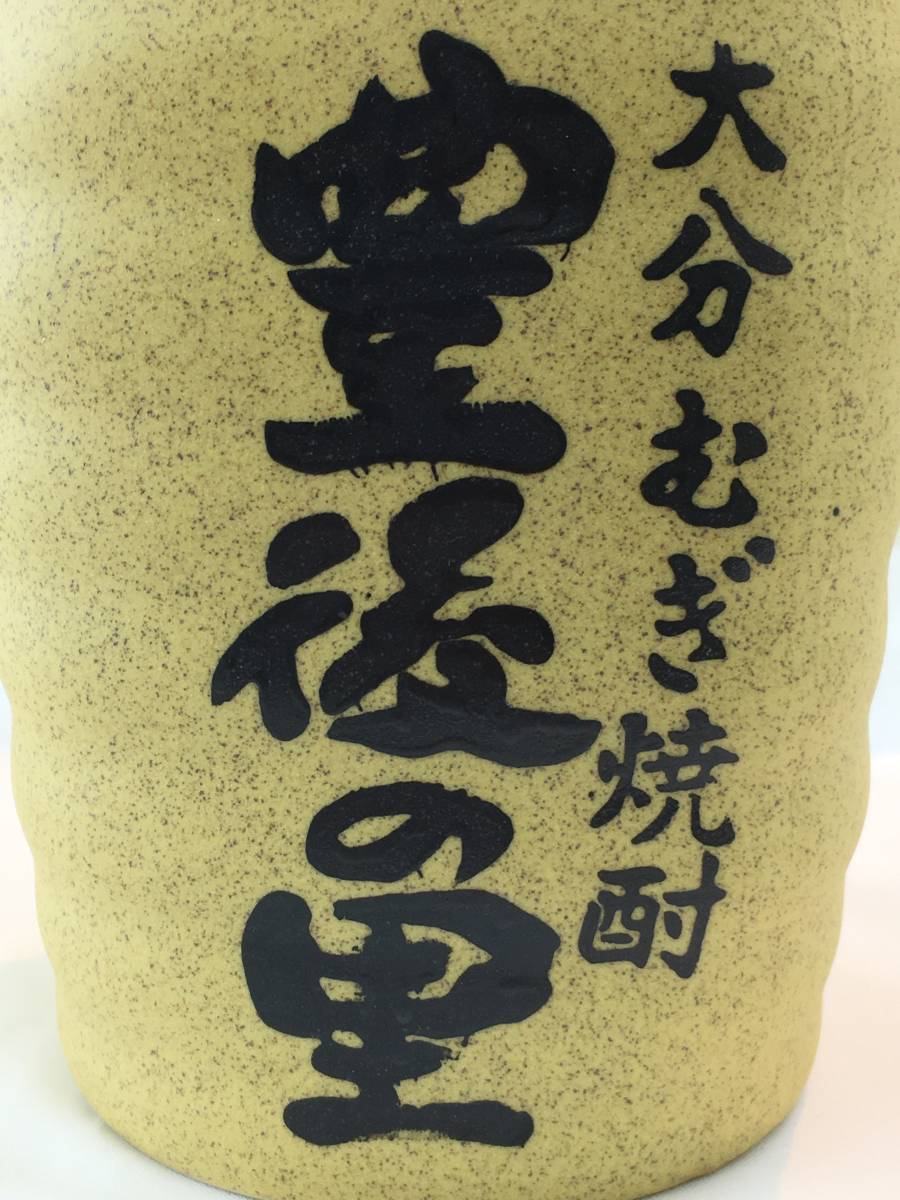 大分むぎ焼酎
豊後の里